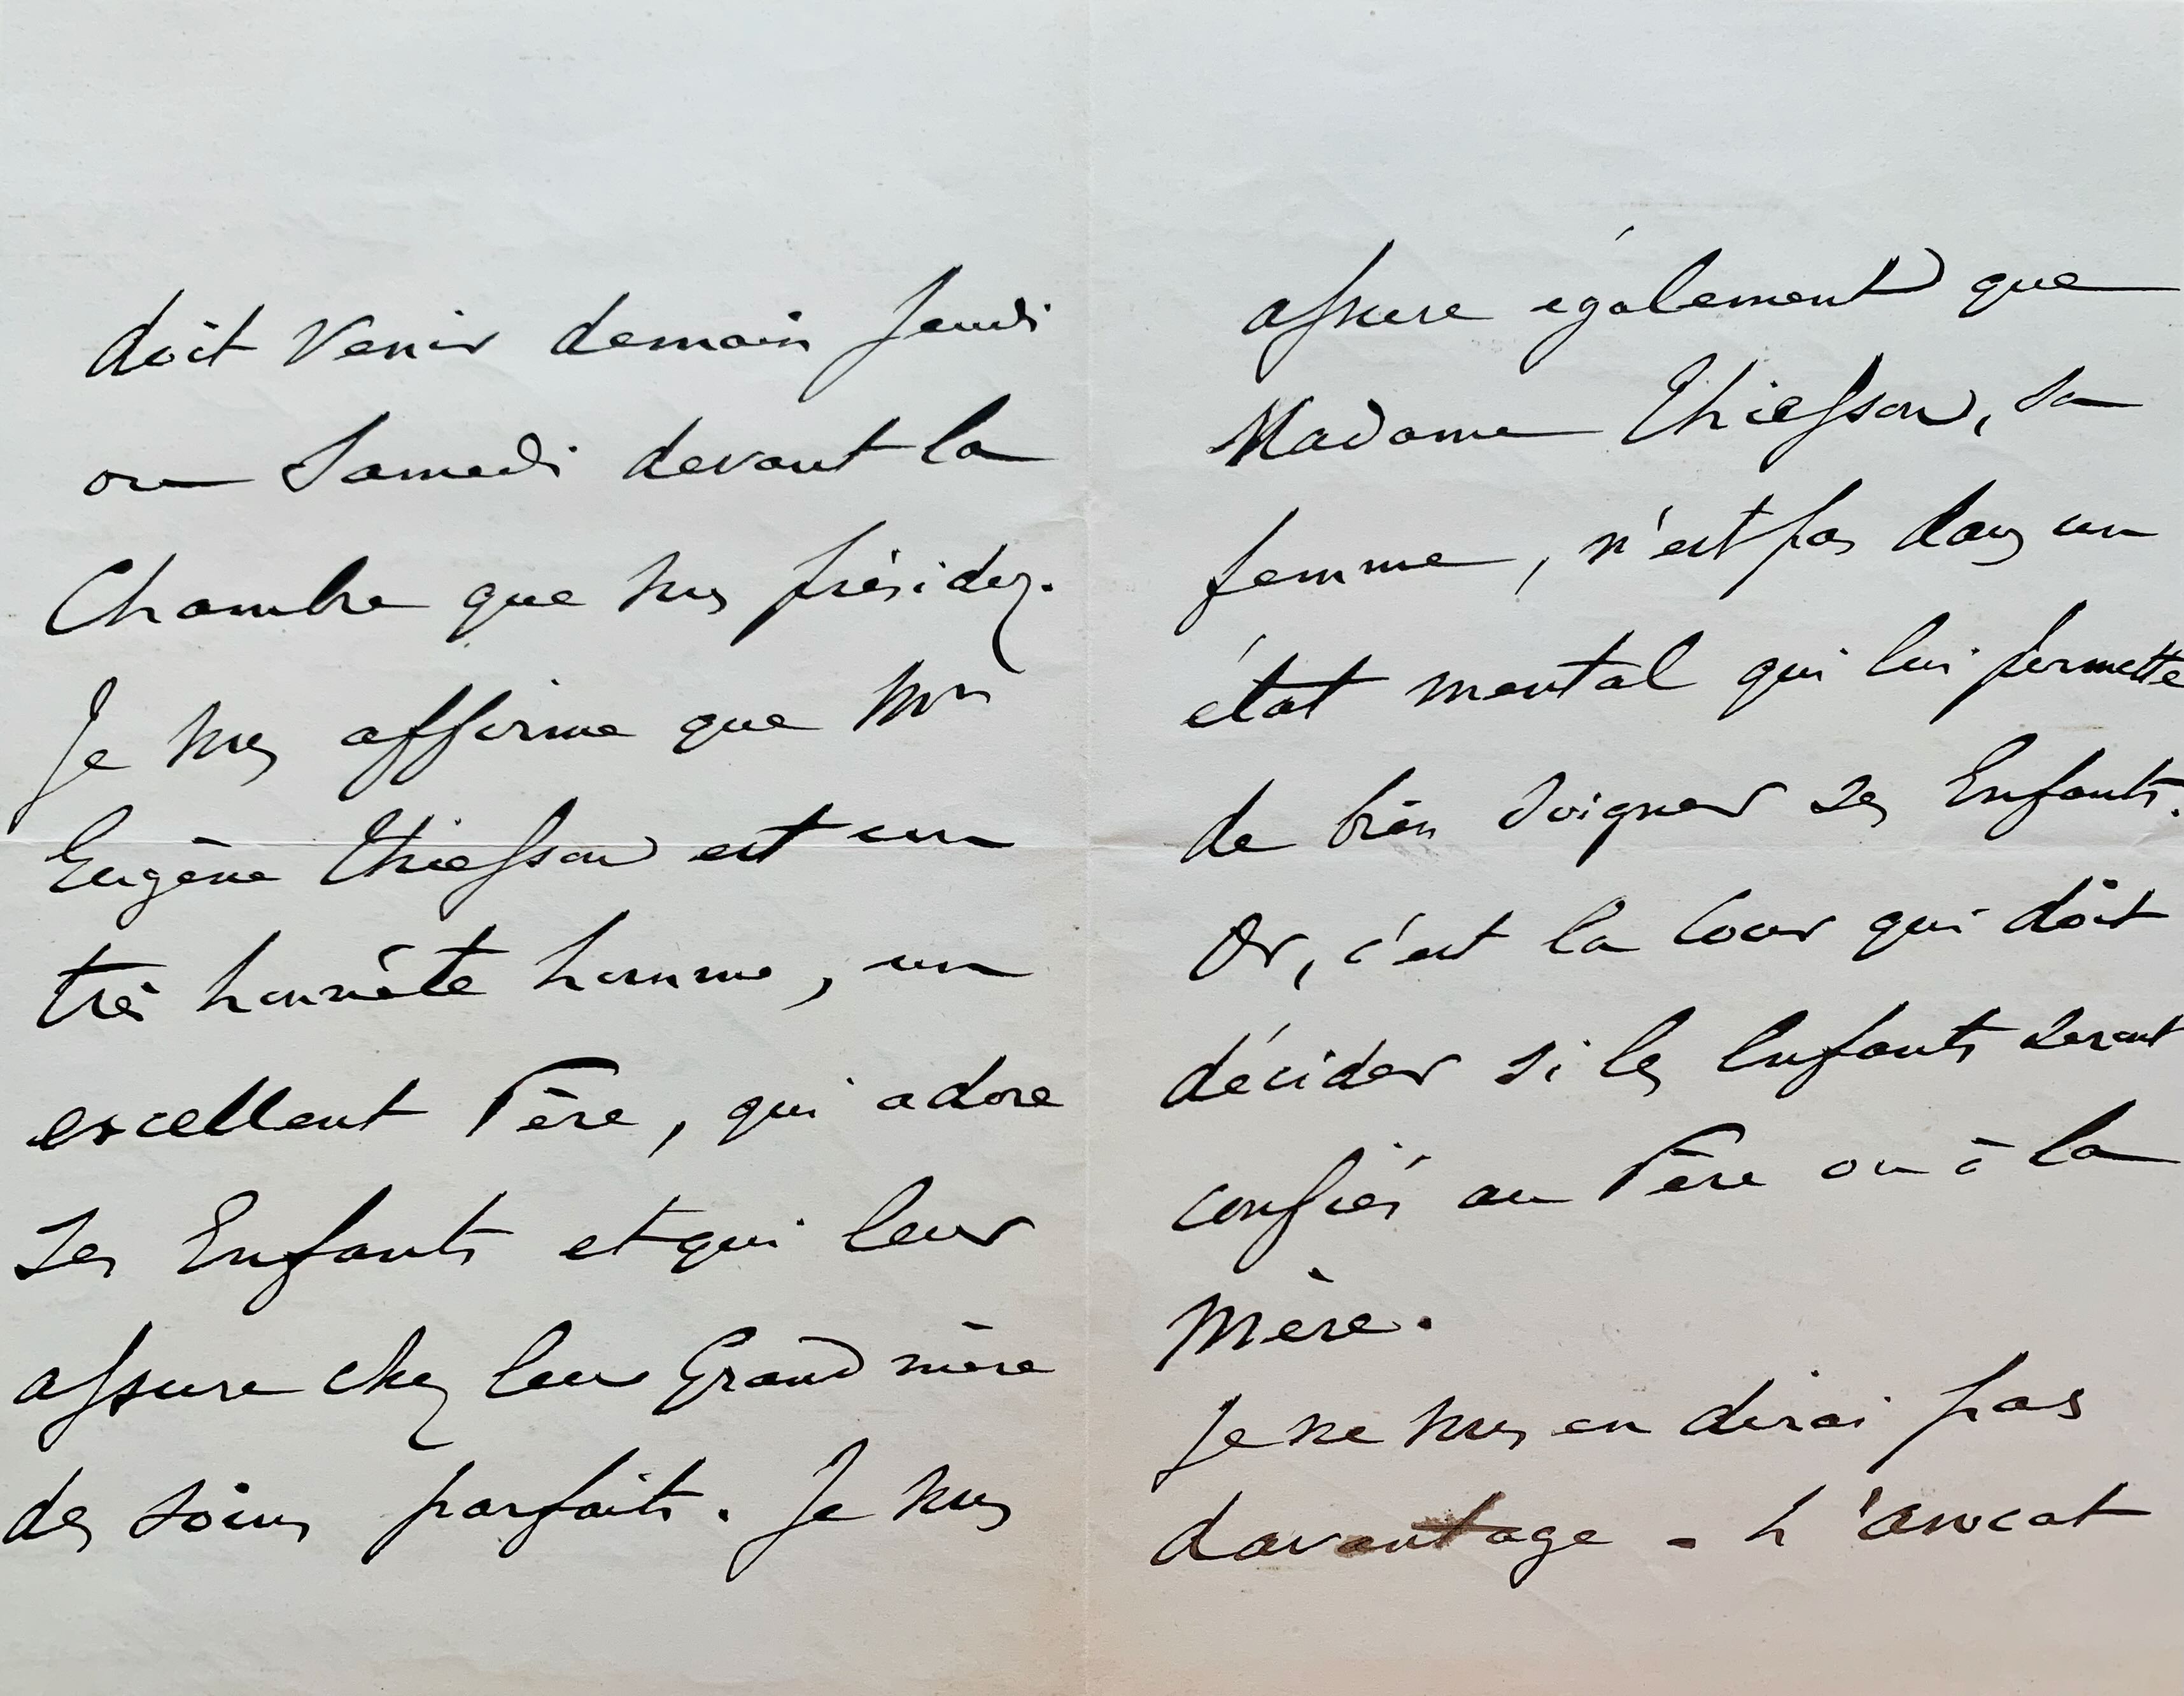 doit venir demain Jeudi
ou Samedi devant la
Chambre que vous présidez.
Je vous affirme que Mr
Eugène Thiesson est un
très honnête homme, un
excellent Père, qui adore
ses Enfants et qui leur
assure chez leur Grand mère
des soins parfaits. Je vous
assure également que
Madame Thiesson, sa
femme, n'est pas dans un
état mental qui lui permette
de bien soigner ses Enfants.
Or, c'est la Cour qui doit
décider si les Enfants seront
confiés au Père ou à la
Mère.
Je ne vous en dirai pas
davantage - L'avocat